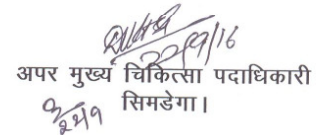 22/9/16
अपर मुख्य चिकित्सा पदाधिकारी
सिमडेगा।
22/9